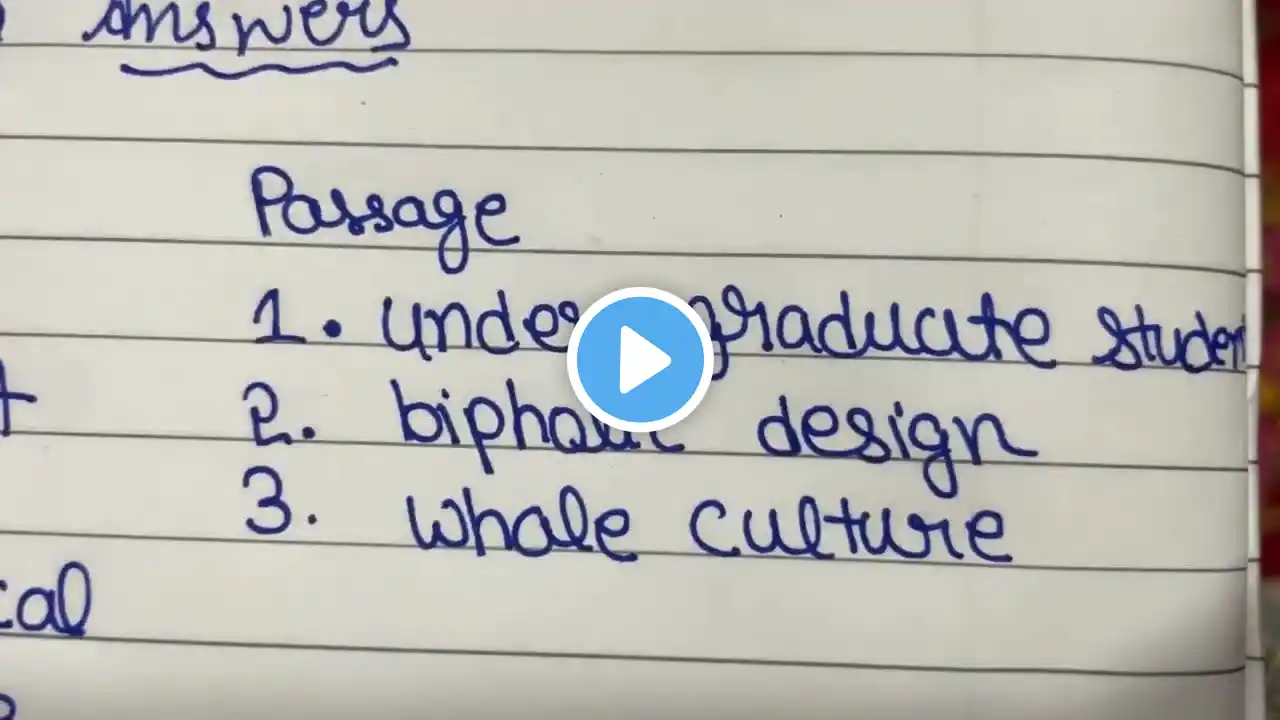 Answers
Passage
1. undergraduate Student
2. design
3. Whale culture
cal